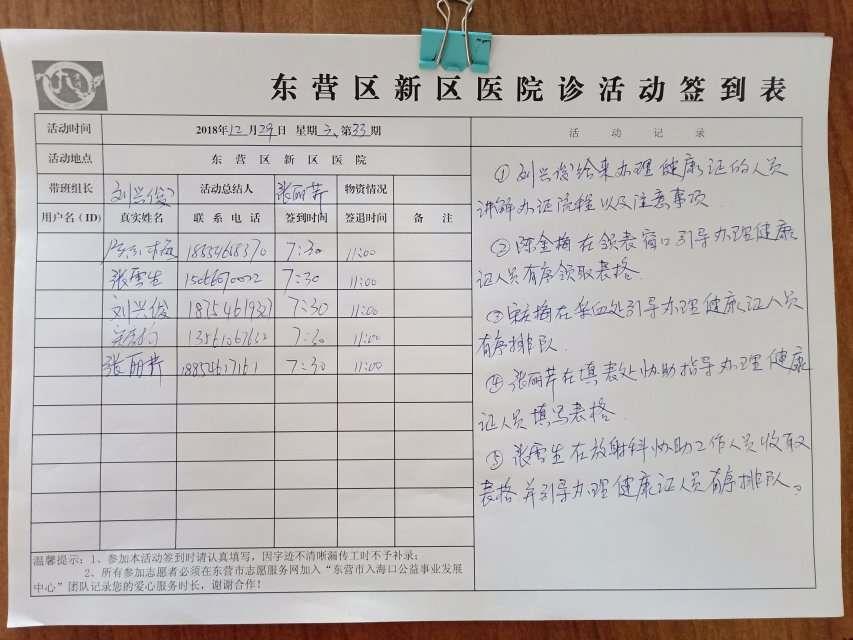 东营区新区医院诊活动签到表
活动时间 2018年12月29日 星期三、第33期
活动地点 东营区新区医院
带班组长 刘兴俊 活动总结人 张丽芹 物资情况
用户名(ID) 真实姓名 联系电话 签到时间 签退时间 备注
7:30 11:00
张雪生 7:30 11:00
刘兴俊 7:30 11:00
7:30 11:00
张丽芹 18854617161 7:30 11:00
温馨提示:1、参加本活动签到时请认真填写,因字迹不清晰漏传工时不予补录;
2、所有参加志愿者必须在东营市志愿服务网加入“东营市入海口公益事业发展
中心”团队记录您的爱心服务时长,谢谢合作!
活动记录
①刘兴俊给来办理健康证的人员
讲解办证流程以及注意事项
②陈金梅在领表窗口引导办理健康
证人员有序领取表格.
③ 梅在采血处引导办理健康证人员
有序排队.
④张丽芹在填表处协助指导办理健康
证人员填写表格.
⑤张雪生在放射科协助工作人员收取
表格并引导办理健康证人员有序排队。